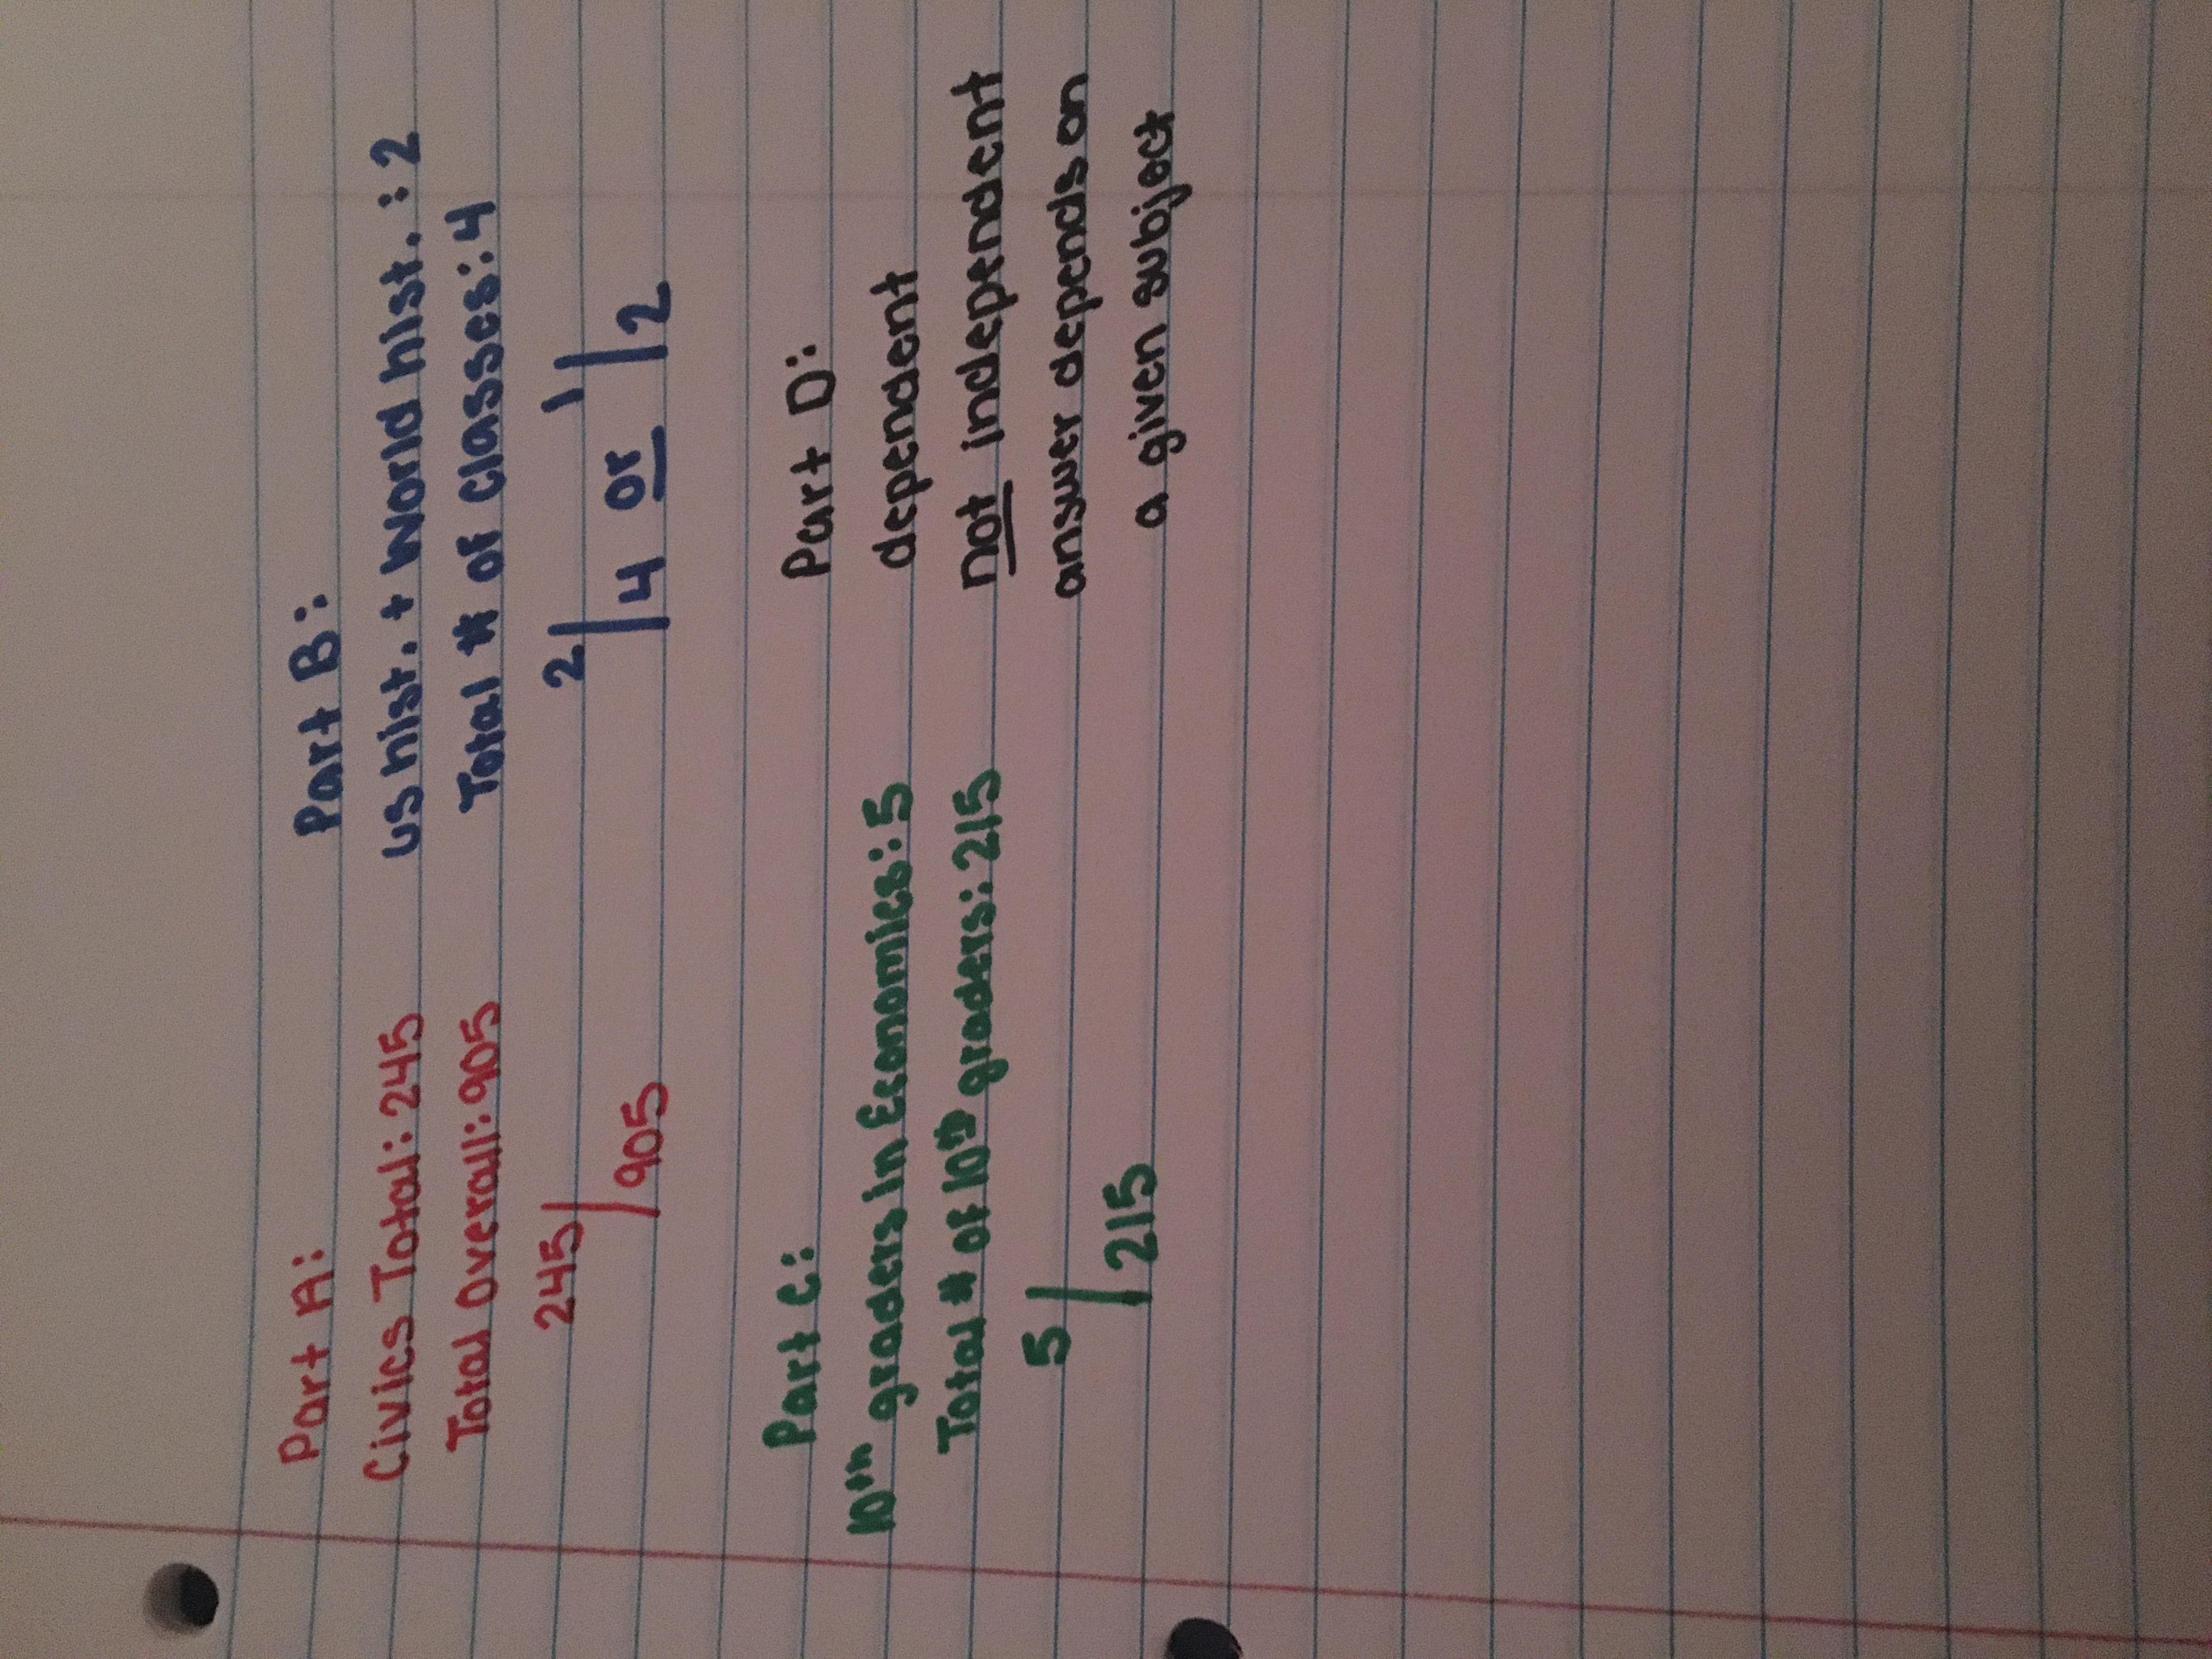 Part A:
Civics Total: 245
Total Overall: 905
245/905
Part B:
US hist. + world hist. : 2
Total # of classes: 4
2/4 or 1/2
Part C:
10th graders in Economics: 5
Total # of 10th graders: 215
5/215
Part D:
dependent
not independent
answer depends on
a given subject